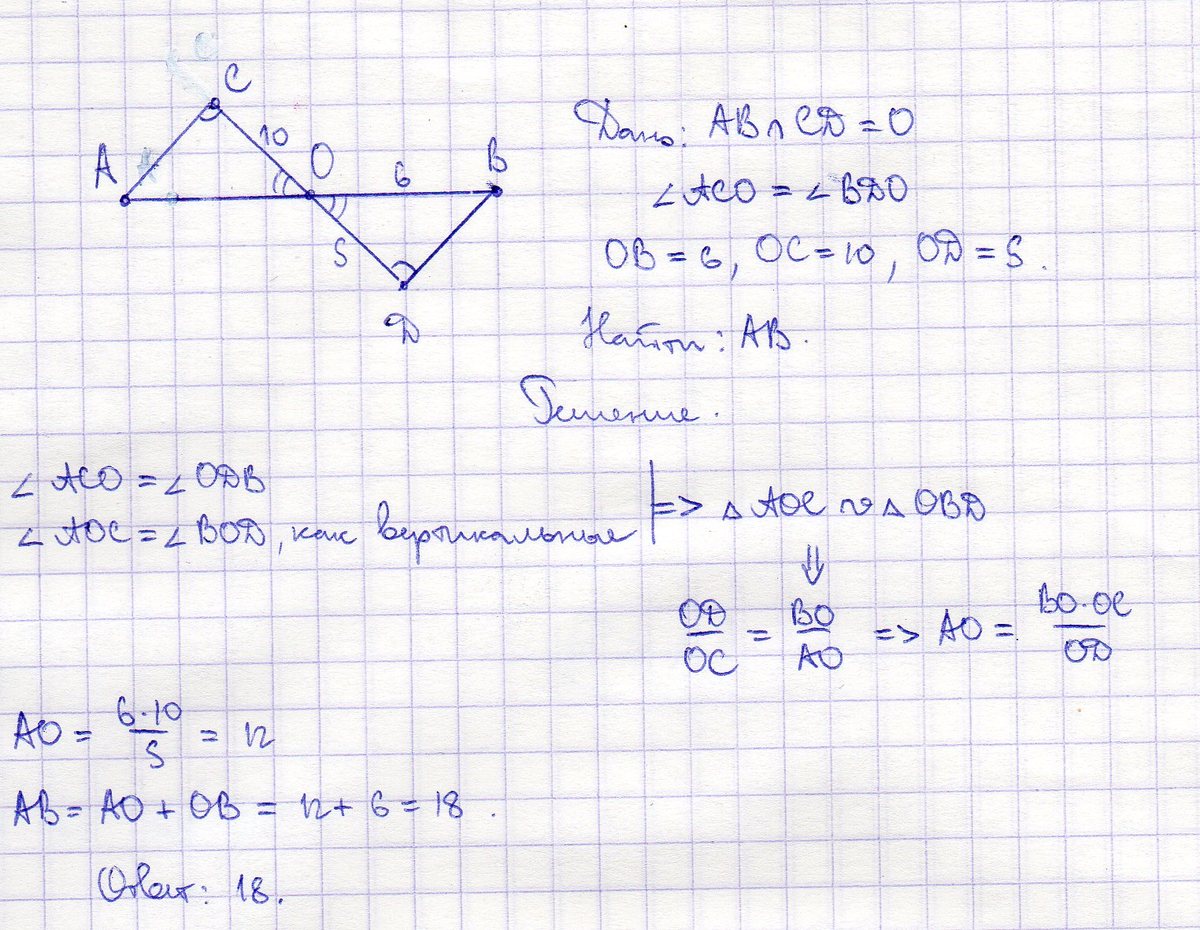 C
10
O
A
6
B
5
D
Дано: AB ∩ CD = O
∠ ACO = ∠ BDO
OB = 6, OC = 10, OD = 5.
Найти: AB.
Решение.
∠ ACO = ∠ ODB
∠ AOC = ∠ BOD, как вертикальные
=> △ AOC ∾ △ OBD
⇓
OD/OC = BO/AO => AO = BO·OC/OD
AO = 6·10/5 = 12
AB = AO + OB = 12 + 6 = 18.
Ответ: 18.